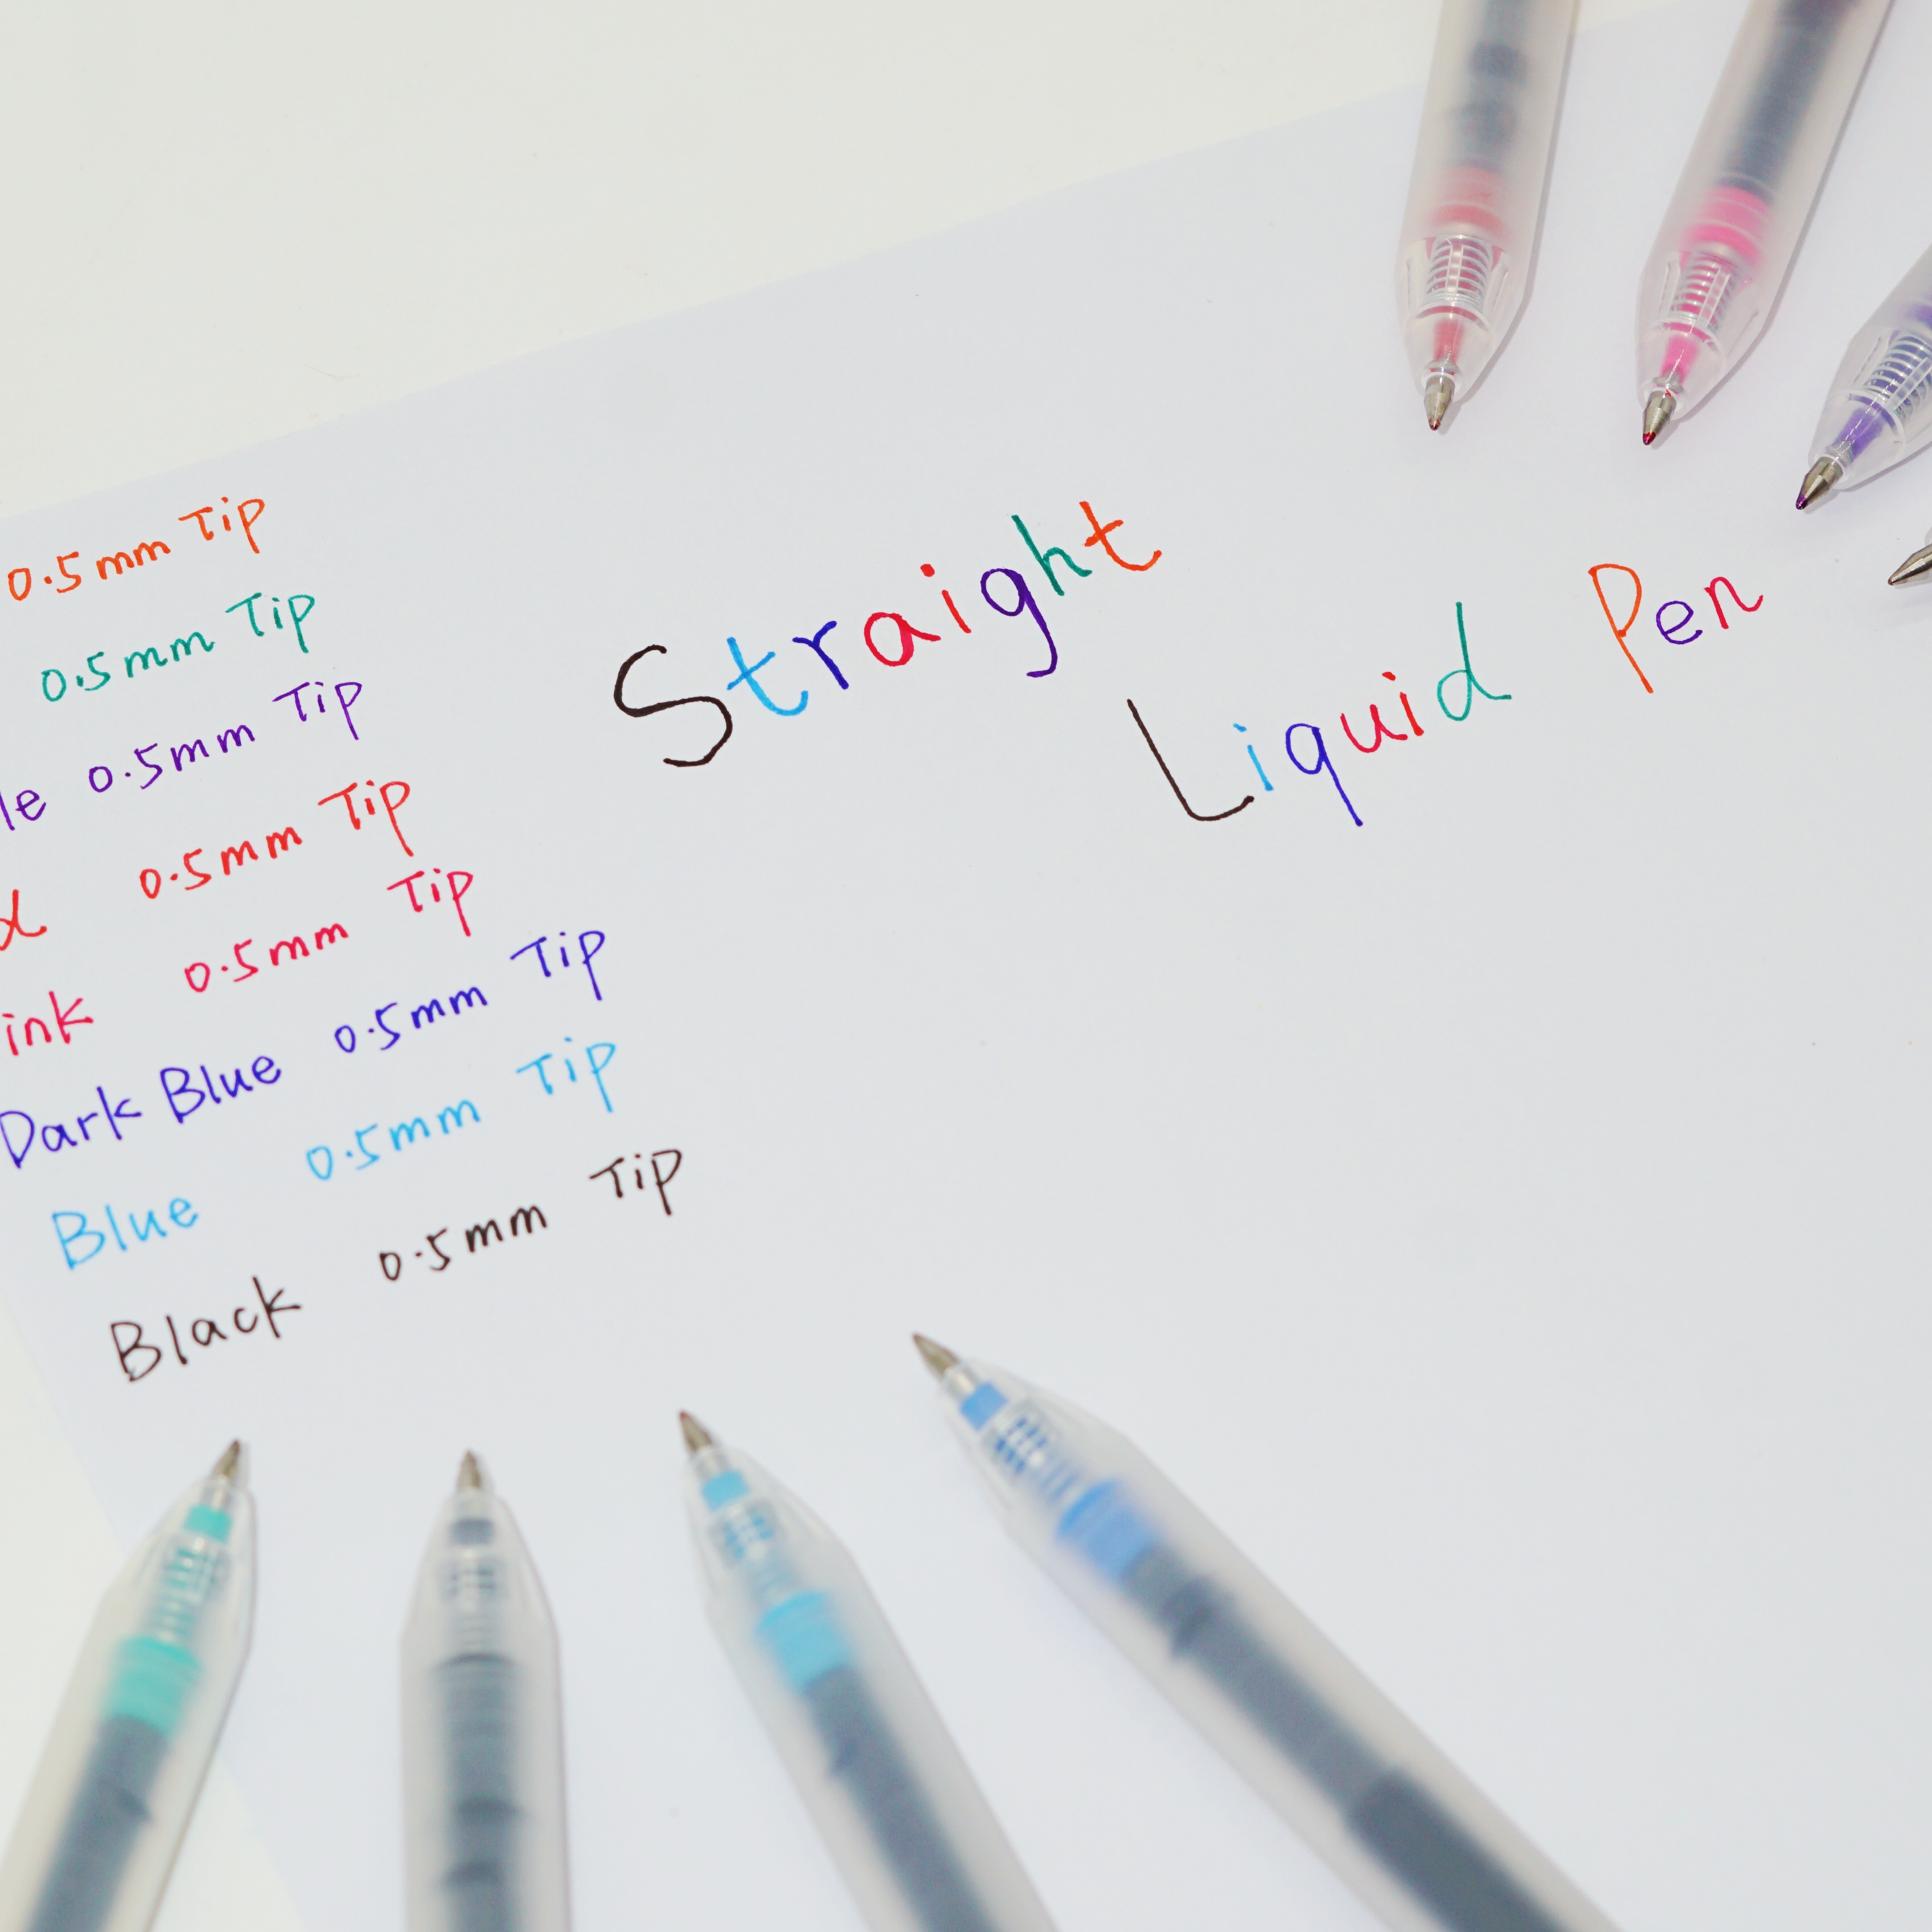 0.5mm Tip
0.5mm Tip
le 0.5mm Tip
d 0.5mm Tip
ink 0.5mm Tip
Dark Blue 0.5mm Tip
Blue 0.5mm Tip
Black 0.5mm Tip
Straight
Liquid Pen